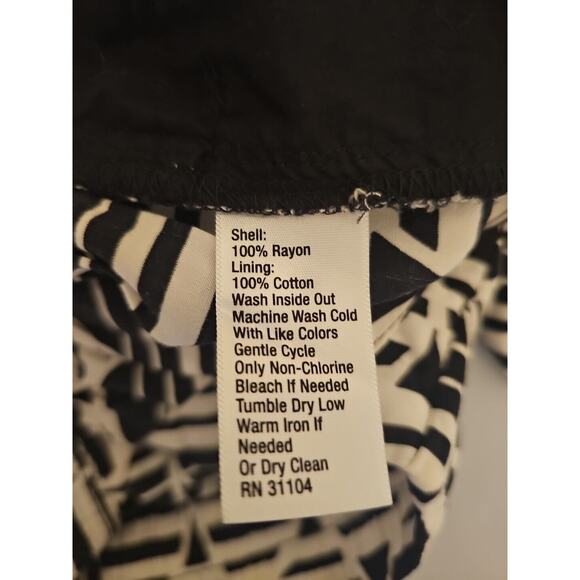 Shell:
100% Rayon
Lining:
100% Cotton
Wash Inside Out
Machine Wash Cold
With Like Colors
Gentle Cycle
Only Non-Chlorine
Bleach If Needed
Tumble Dry Low
Warm Iron If
Needed
Or Dry Clean
RN 31104